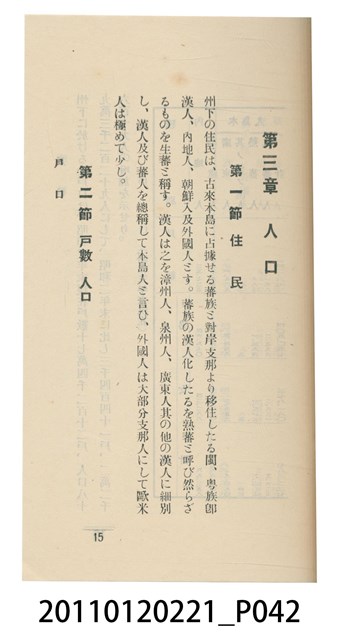 第三章 人口
第一節 住民
州下の住民は、古來本島に占據せる蕃族と對岸支那より移住したる閩、粤族卽
漢人、內地人、朝鮮人及外國人とす。蕃族の漢人化したるを熟蕃と呼び然らざ
るものを生蕃と稱す。漢人は之を漳州人、泉州人、廣東人其の他の漢人に細別
し、漢人及び蕃人を總稱して本島人と言ひ、外國人は大部分支那人にして歐米
人は極めて少し。
第二節 戶數 人口
戶口
15
20110120221_P042